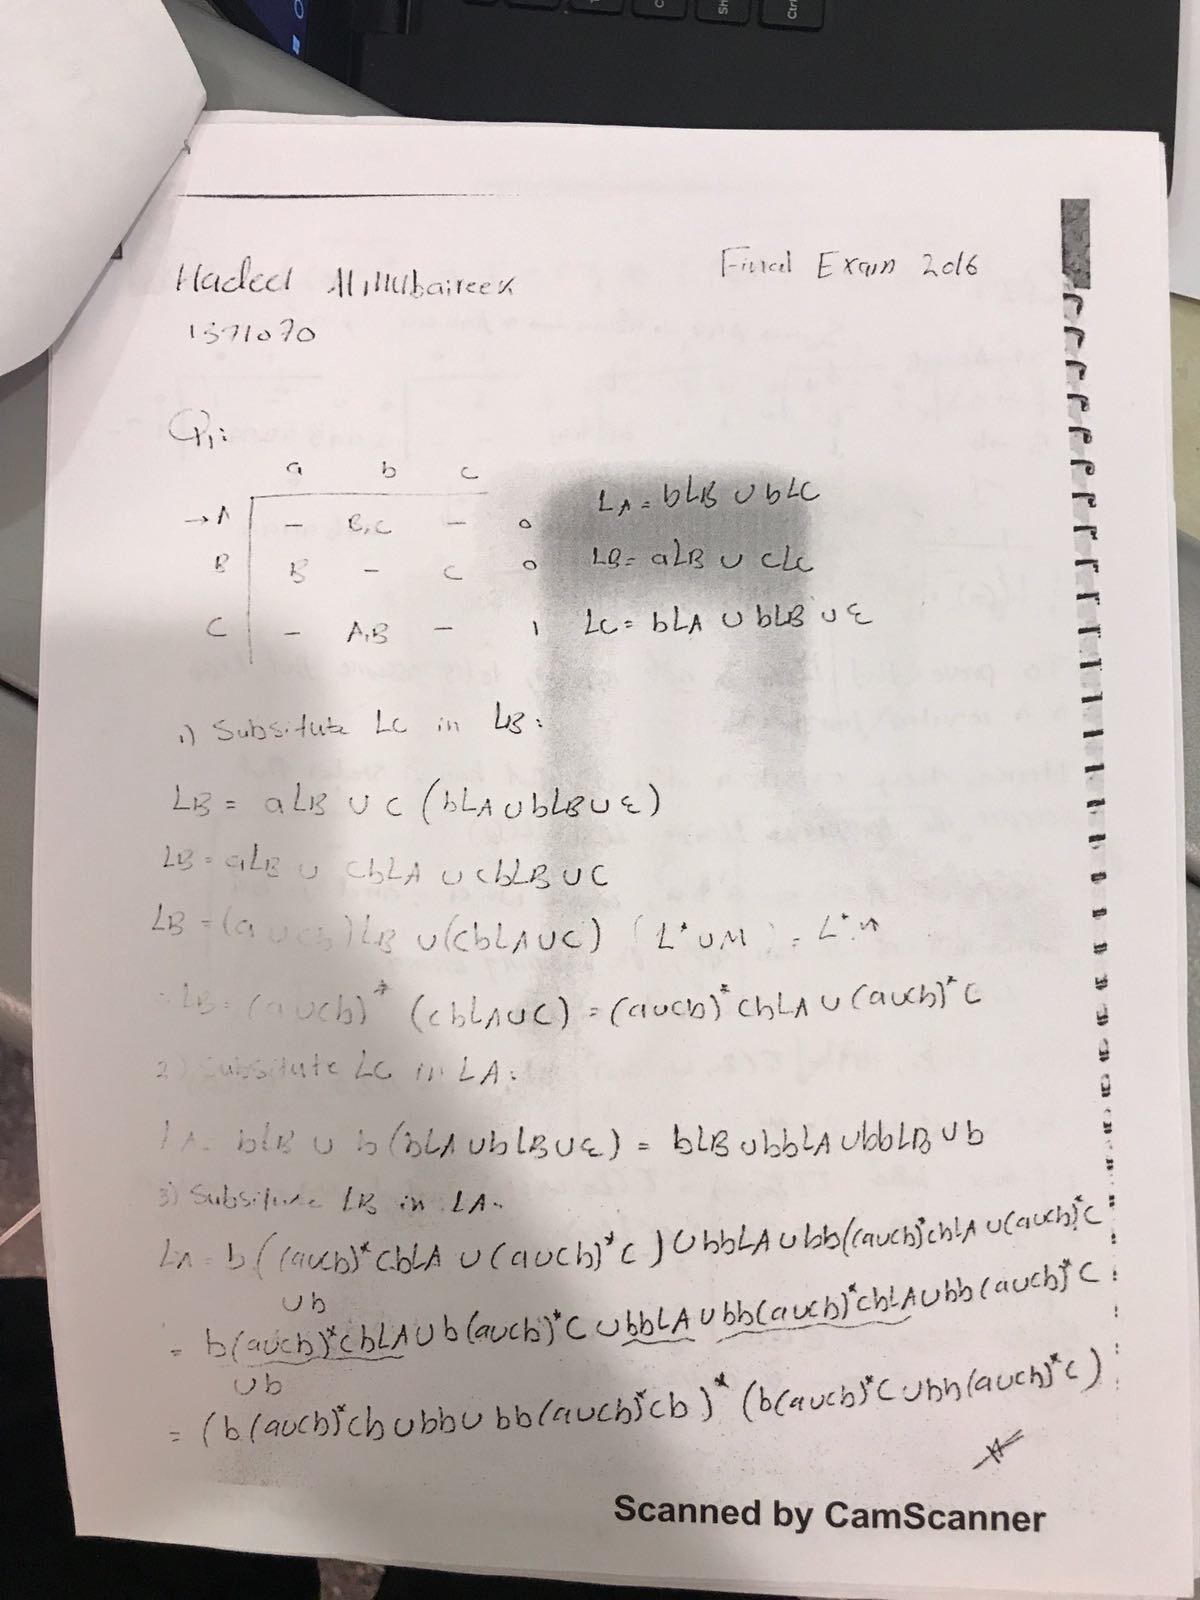 Final Exam 2016
Hadeel
1371070
Q1:
a b c
→A - B,C - 0 LA = bLB ∪ bLC
B B - C 0 LB = aLB ∪ cLC
C - A,B - 1 LC = bLA ∪ bLB ∪ ε
1) Subsitute LC in LB:
LB = aLB ∪ C (bLA ∪ bLB ∪ ε)
LB = aLB ∪ cbLA ∪ cbLB ∪ C
LB = (a ∪ cb) LB ∪ (cbLA ∪ C) (L* ∪ M) = L*.M
LB = (a ∪ cb)* (cbLA ∪ C) = (a∪cb)* cbLA ∪ (a∪cb)* C
2) Subsitute LC in LA:
LA = bLB ∪ b(bLA ∪ bLB ∪ ε) = bLB ∪ bbLA ∪ bbLB ∪ b
3) Subsitute LB in LA.
LA = b((a∪cb)* cbLA ∪ (a∪cb)* C) ∪ bbLA ∪ bb((a∪cb)* cbLA ∪ (a∪cb)* C
∪b
= b(a∪cb)* cbLA ∪ b(a∪cb)* C ∪ bbLA ∪ bb(a∪cb)* cbLA ∪ bb(a∪cb)* C
∪b
= (b(a∪cb)* cb ∪ bb ∪ bb(a∪cb)* cb)* (b(a∪cb)* C ∪ bb(a∪cb)* C)
Scanned by CamScanner